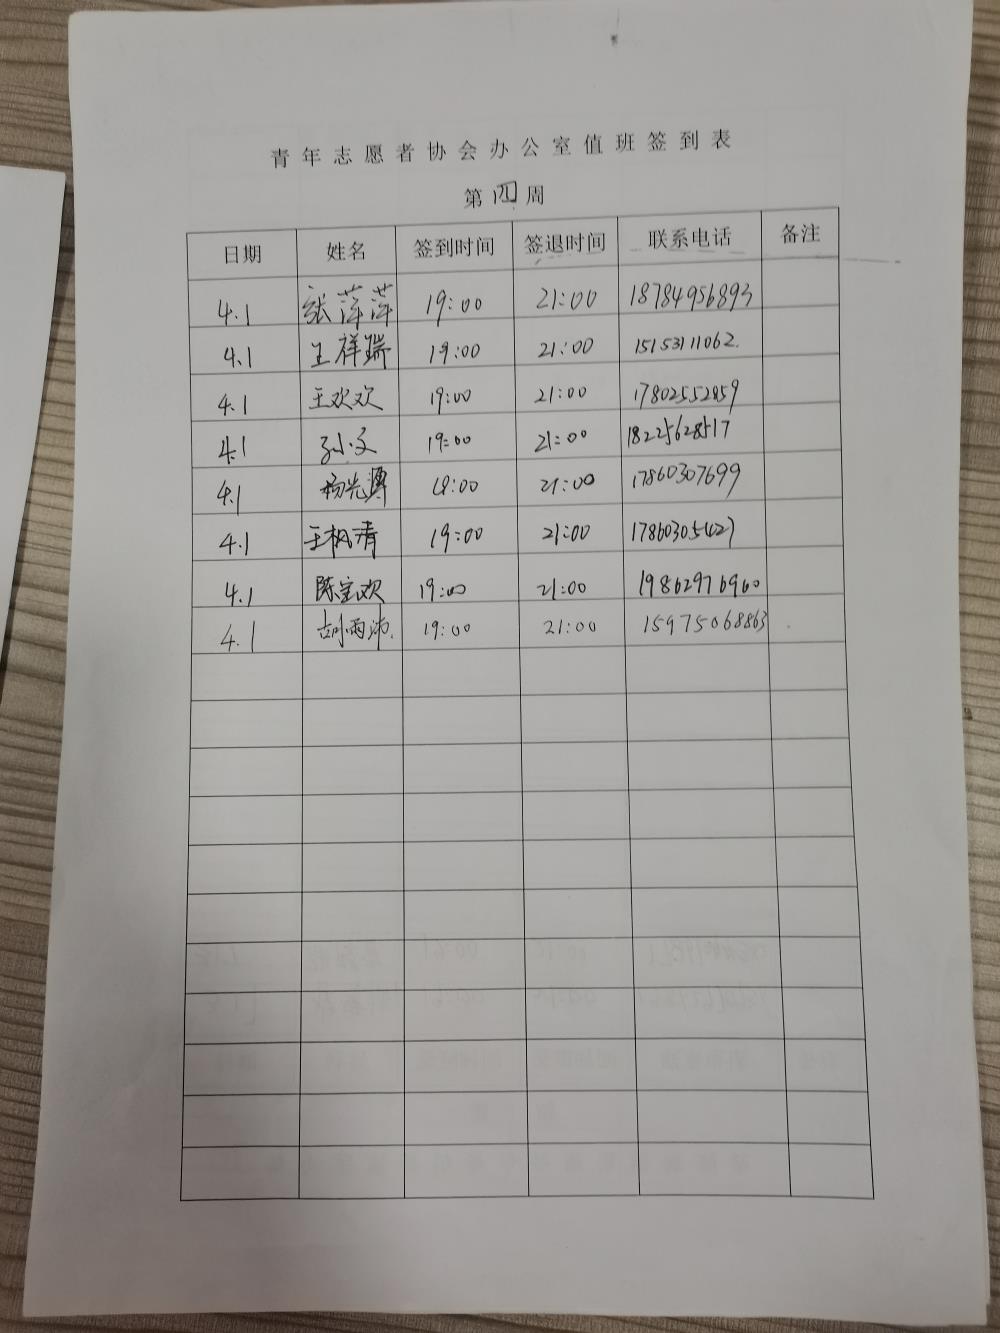 青年志愿者协会办公室值班签到表
第四周
日期 姓名 签到时间 签退时间 联系电话 备注
4.1 张萍萍 19:00 21:00 18784956893
4.1 王祥瑞 19:00 21:00 15153111062
4.1 王欢欢 19:00 21:00 17802552859
4.1 孙文 19:00 21:00 18225628517
4.1 杨光 19:00 21:00 17860307699
4.1 王枫清 19:00 21:00 17860305427
4.1 陈宝欢 19:00 21:00 19862976960
4.1 胡雨沛 19:00 21:00 15975068863